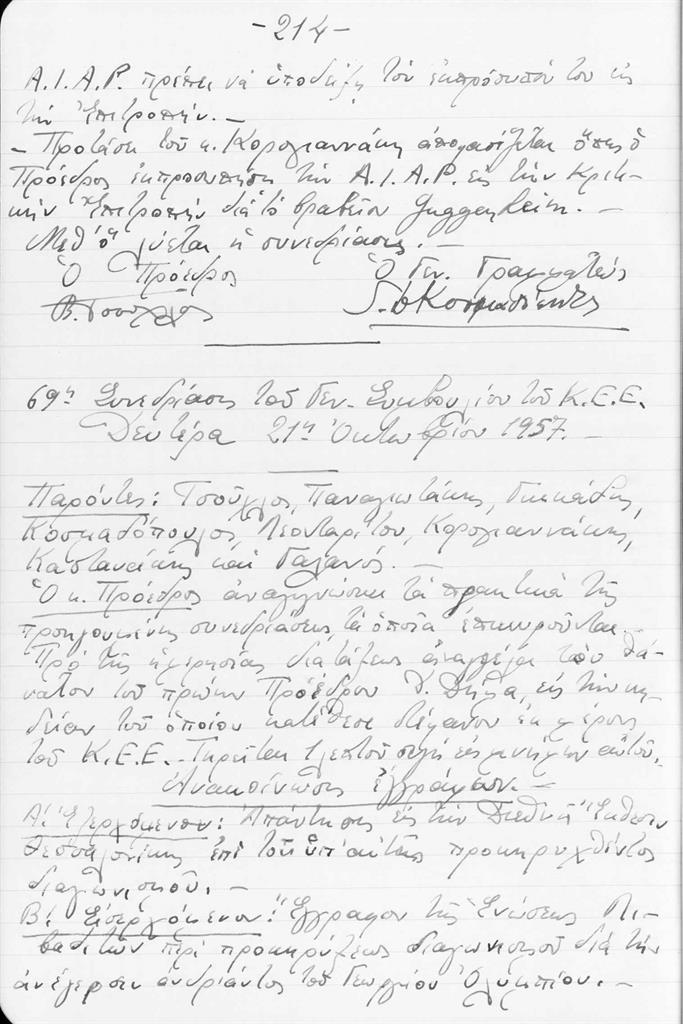 -214-
Α.Ι.Α.Ρ. πρέπει νά ὑποδείξῃ τόν ἐκπρόσωπόν του εἰς
τήν Ἐπιτροπήν. —
- Προτάσει τοῦ κ. Κορογιαννάκη ἀποφασίζεται ὅπως ὁ
Πρόεδρος ἐκπροσωπήσῃ τήν Α.Ι.Α.Ρ. εἰς τήν Κριτι-
κήν Ἐπιτροπήν διά τό βραβεῖον Guggenheim. —
Μεθ' ὅ λύεται ἡ συνεδρίασις. —
Ὁ Πρόεδρος Ὁ Γεν. Γραμματεύς
69η Συνεδρίασις τοῦ Γεν. Συμβουλίου τοῦ Κ.Ε.Ε.
Δευτέρα 21η Ὀκτωβρίου 1957. —
Παρόντες: Τσοῦχλος, Παναγιωτάκης,
Κοσμαδόπουλος, Λεονταρίτου, Κορογιαννάκης,
Καστανάκης καί Γαλανός. —
Ὁ κ. Πρόεδρος ἀναγιγνώσκει τά πρακτικά τῆς
προηγουμένης συνεδριάσεως, τά ὁποῖα ἐπικυροῦνται.
Πρό τῆς ἡμερησίας διατάξεως ἀναγγέλει τόν θά-
νατον τοῦ πρώην Προέδρου εἰς τήν κη-
δείαν τοῦ ὁποίου κατέθεσε στέφανον ἐκ μέρους
τοῦ Κ.Ε.Ε. - Τηρεῖται 1 λεπτοῦ σιγή εἰς μνήμην αὐτοῦ.
Ἀνακοίνωσις ἐγγράφων. —
Α! Ἐξερχόμενον: Ἀπάντησις εἰς τήν Διεθνῆ Ἔκθεσιν
Θεσσαλονίκης ἐπί τοῦ ὑπ' αὐτῆς προκηρυχθέντος
διαγωνισμοῦ. —
Β! Εἰσερχόμενον: Ἔγγραφον τῆς Ἑνώσεως Λι-
βαδιτῶν περί προκηρύξεως διαγωνισμοῦ διά τήν
ἀνέγερσιν ἀνδριάντος τοῦ Γεωργίου Ὀλυμπίου. —